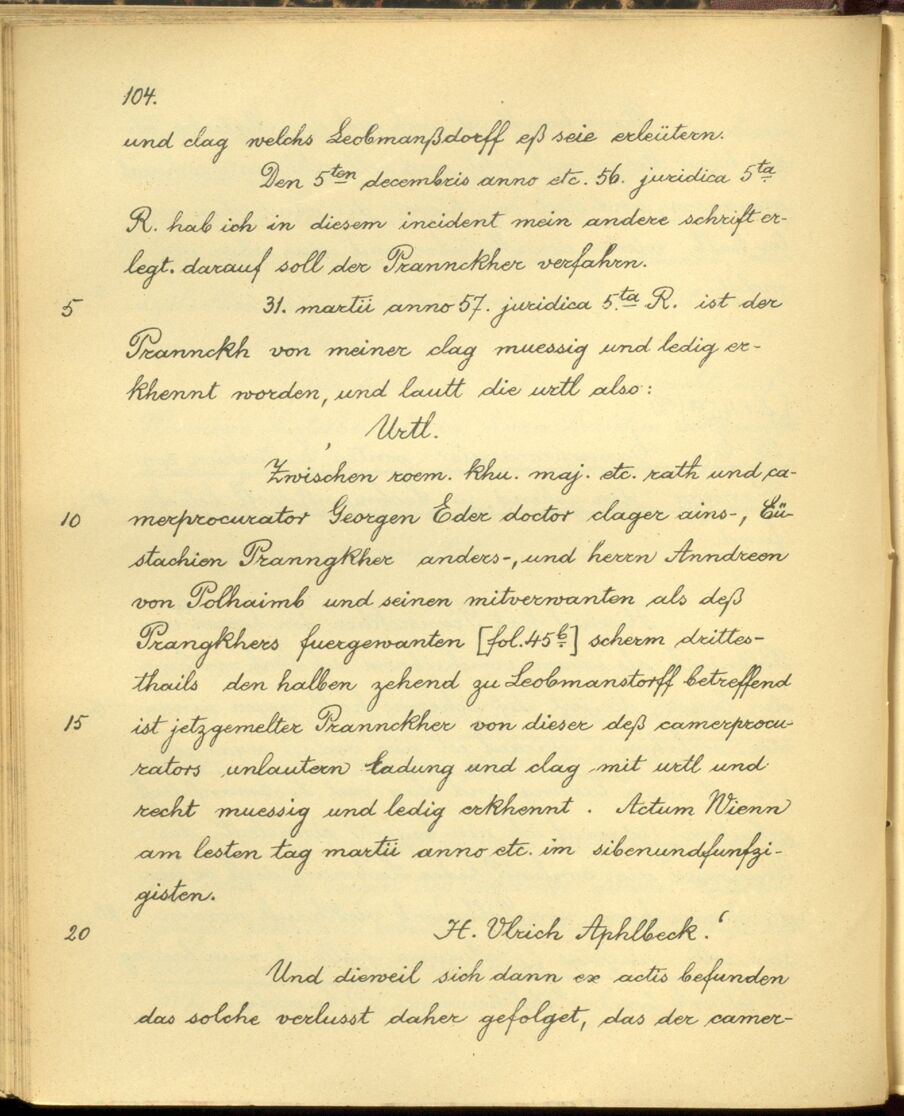 104.
und clag welchs Leobmanßdorff eß seie erleütern.
Den 5ten decembris anno etc. 56. juridica 5ta
R. hab ich in diesem incident mein andere schrift er-
legt. darauf soll der Prannckher verfahrn.
5 31. martii anno 57. juridica 5.ta R. ist der
Prannckh von meiner clag muessig und ledig er-
khennt worden, und lautt die urtl also:
‚ Urtl.
Zwischen roem. khu. maj. etc. rath und ca-
10 merprocurator Georgen Eder doctor clager ains-, Eü-
stachien Pranngkher anders-, und herrn Anndreen
von Polhaimb und seinen mitverwanten als deß
Prangkhers fuergewanten [fol. 45b.] scherm drittes-
thails den halben zehend zu Leobmanstorff betreffend
15 ist jetzgemelter Prannckher von dieser deß camerprocu-
rators unlautern ladung und clag mit urtl und
recht muessig und ledig erkhennt. Actum Wienn
am lesten tag martii anno etc. im sibenundfunfzi-
gisten.
20 H. Vlrich Aphlbeck.‘
Und dieweil sich dann ex actis befunden
das solche verlusst daher gefolget, das der camer-